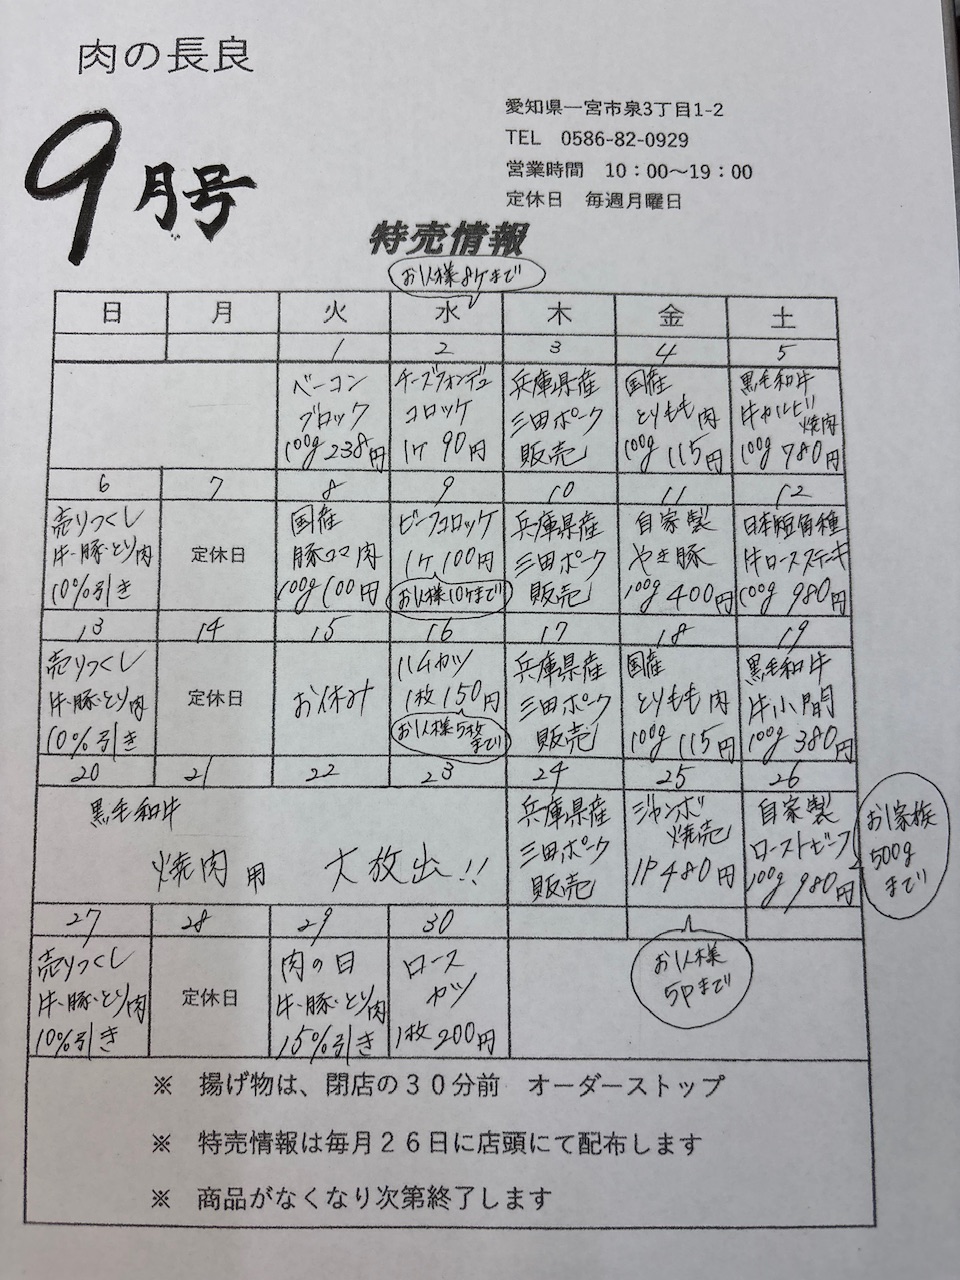 肉の長良
9月号
愛知県一宮市泉3丁目1-2
TEL 0586-82-0929
営業時間 10：00～19：00
定休日 毎週月曜日
特売情報
お1人様8ケまで
日 月 火 水 木 金 土
1 2 3 4 5
ベーコン
ブロック
100g 238円
チーズフォンデュ
コロッケ
1ケ 90円
兵庫県産
三田ポーク
販売
国産
とりもも肉
100g 115円
黒毛和牛
牛カルビ
焼肉
100g 780円
6 7 8 9 10 11 12
売りつくし
牛・豚・とり肉
10%引き
定休日
国産
豚コマ肉
100g 100円
ビーフコロッケ
1ケ 100円
お1人様10ケまで
兵庫県産
三田ポーク
販売
自家製
やき豚
100g 400円
日本短角種
牛ロースステーキ
100g 980円
13 14 15 16 17 18 19
売りつくし
牛・豚・とり肉
10%引き
定休日
お休み
ハムカツ
1枚 150円
お1人様5枚まで
兵庫県産
三田ポーク
販売
国産
とりもも肉
100g 115円
黒毛和牛
牛小間
100g 380円
20 21 22 23 24 25 26
黒毛和牛
焼肉用 大放出!!
兵庫県産
三田ポーク
販売
ジャンボ
焼売
1P 480円
自家製
ローストビーフ
100g 980円
お1家族
500g
まで
27 28 29 30
売りつくし
牛・豚・とり肉
10%引き
定休日
肉の日
牛・豚・とり肉
15%引き
ロース
カツ
1枚 200円
お1人様
5pまで
※ 揚げ物は、閉店の３０分前 オーダーストップ
※ 特売情報は毎月２６日に店頭にて配布します
※ 商品がなくなり次第終了します